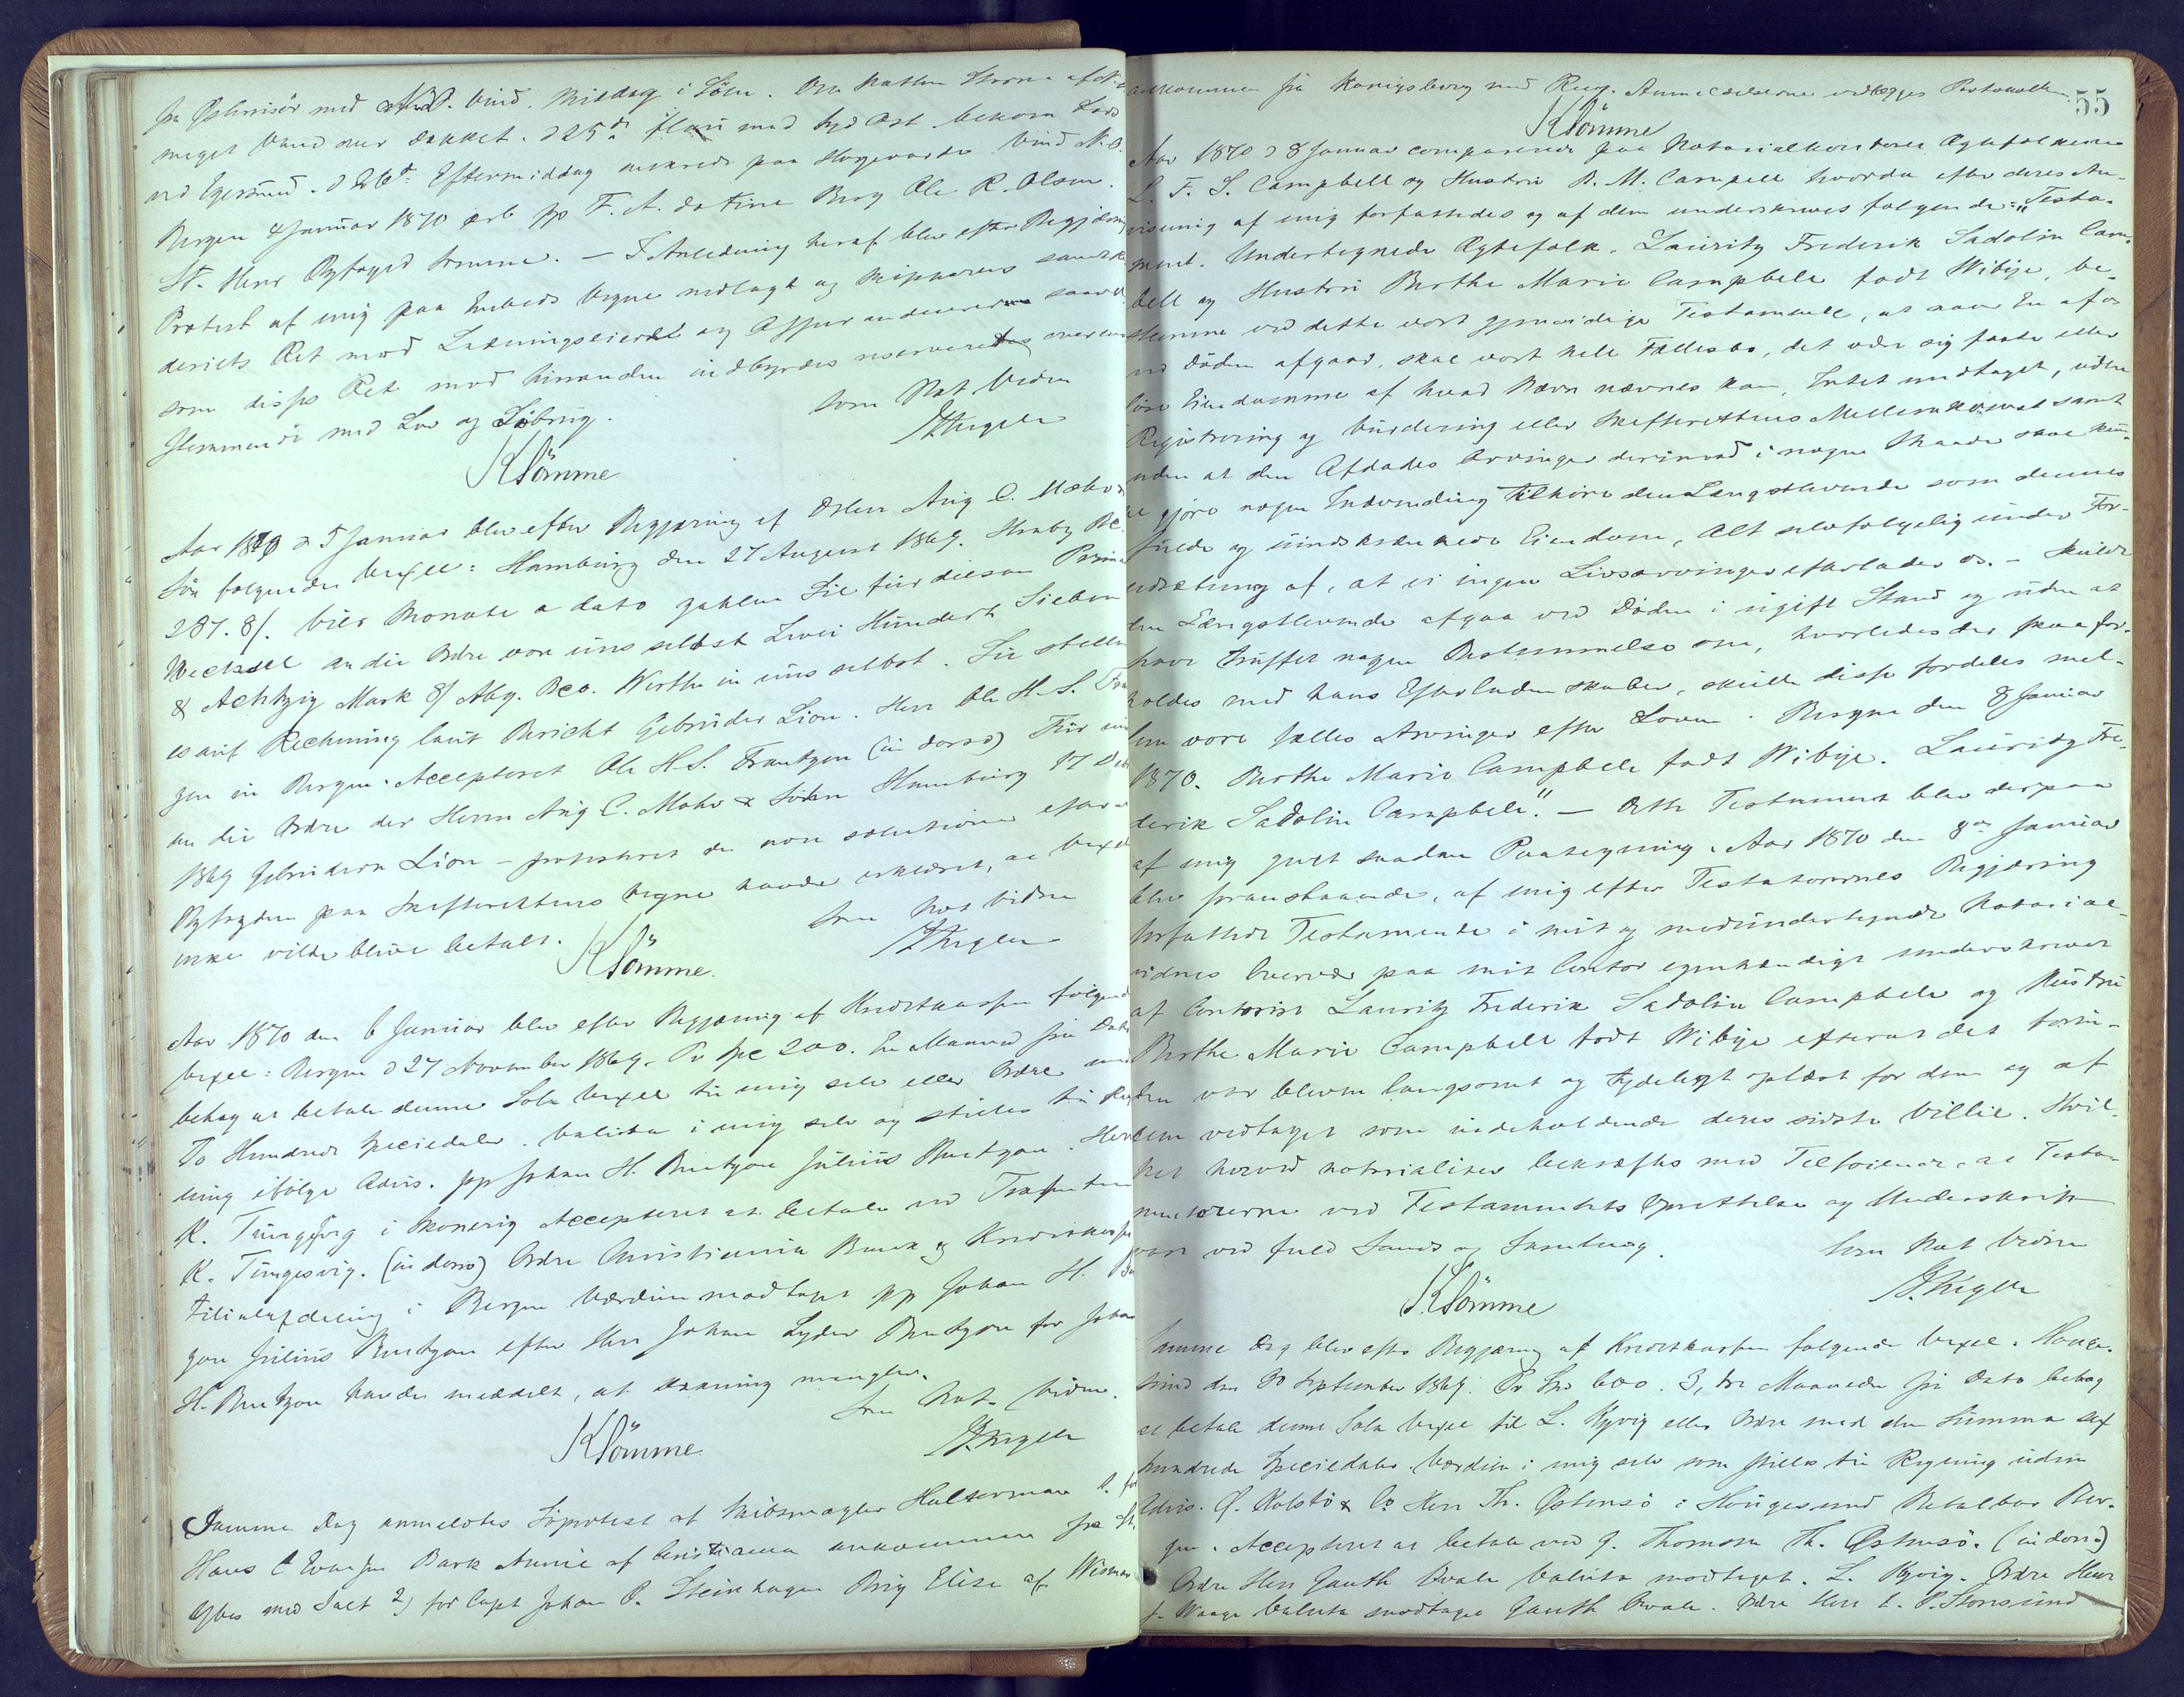 fra Østerriisör med Vind. Middag i Söen. Om Natten Storm af N.
meget Vand over Dækket. d 25de flau med Syd Ost bekom Lods
ved Egersund. d 26de Eftermiddag ankrede paa Vind N.O.
Bergen 4 Januar 1870 F. A. Brig Ole R. Olsen.
St. Herr Byfoged Lömme. – I Anledning heraf blev efter Begjæring
Protest af mig paa Embeds Vegne nedlagt og Skipperens
Ret mod Ladningseieren og Assurandeurerne saavel
som disses Ret mod hinanden indbyrdes reserveret overeens
stemmende med Lov og Sædvane.
som Not. Vidne
Klömme
Aar 1870 d 5 Januar blev efter Begjæring af D'Herrer Aug C. Mohr &
Sön følgende Vexel: Hamburg den 27 August 1869. Hmbg Bco.
287. 8/. Vier Monate a dato zahlen Sie für diesen Prima
Wechsel an die Ordre von uns selbst Zwei Hundert Sieben
& Achtzig Mark 8/ Hbg. Bco. Werth in uns selbst. Sie stellen
es auf Rechnung laut Bericht Gebrüder Lion. Herr Ole H. S. Frant
zen in Bergen. Accepteret Ole H. S. Frantzen (in dorso) Für uns
an die Ordre der Herrn Aug C. Mohr & Söhn Hamburg 17 Debr
1869 Gebrüdern Lion – protesteret de non solutione efterat
Byfogden paa Skifterettens Vegne havde erklæret, at Vexelen
ikke vilde blive betalt.
som Not Vidne
Klömme.
Aar 1870 den 6 Januar blev efter Begjæring af Kreditkassen følgende
Vexel: Bergen d 27 November 1869. Pr Spe 200. En Maaned fra Dato
behag at betale denne Sola Vexel til mig selv eller Ordre med
To Hundrede Speciedaler. Valuta i mig selv og stilles til Reg
ning ifölge Advis. pp Johan H. Brntzon Julius Brntzon. Herr
K. Tungesvig i Skonevig Accepteret at betale ved
K. Tungesvig. (in dorso) Ordre Christiania Bank og Kreditkasse
Filialafdeling i Bergen Værdien modtaget pp Johan H.
zon Julius Brntzon efter Herr Johan Lyder Brntzon for Johan
H. Brntzon havde meddelt, at Dækning mangler.
som Not. Vidne.
Klömme
Samme Dag anmeldtes Søprotest af Skibsmægler Halterman 1. for
Hans C Evensen Bark Annie af Christiania ankommen fra St.
Ybes med Salt 2) for Capt Johan P. Steinhagen Brig Elise af Wismar
55
ankommen fra Kønigsberg med Rug. Anmeldelserne vedlægges Protokollen.
Klömme
Aar 1870 d 8 Januar comparerede paa Notarialkontoret Ægtefolkene
L. F. S. Campbell og Hustru B. M. Campell hvorda efter deres An-
visning af mig forfattedes og af dem underskrives følgende: "Testa-
ment. Undertegnede Ægtefolk, Lauritz Frederik Sadolin Camp-
bell og Hustru Berthe Marie Campbell født Wibye, be-
stemme ved dette vort gjensidige Testamente, at naar En af os
ved Døden afgaar, skal vort hele Fællesbo, det være sig faste eller
löse Eiendomme af hvad Navn nævnes kan, Intet undtaget, uden
Registrering og Vurdering eller Skifterettens Mellemkomst samt
uden at den Afdødes Arvinger derimod i nogen Maade skal kun-
ne gjøre nogen Indvending tilhøre den Længstlevende som dennes
fulde og uindskrænkede Eiendom, Alt selvfølgelig under For-
udsætning af, at vi ingen Livsarvinger efterlader os. – Skulde
den Længstlevende afgaa ved Døden i ugift Stand og uden at
have truffet nogen Bestemmelse om, hvorledes der skal for-
holdes med hans Efterladenskaber, skulle disse fordeles mel-
lem vore fælles Arvinger efter Loven. Bergen den 8 Januar
1870. Berthe Marie Campbell født Wibye. Lauritz Fre-
derik Sadolin Campbell." – Dette Testament blev derpaa
af mig givet saadan Paategning. Aar 1870 den 8de Januar
blev foranstaaende, af mig efter Testatorernes Begjæring
forfattede Testamente i mit og medundertegnede Notarial-
vidnes Overvær paa mit Contor egenhændigt underskrevet
af Contorist Lauritz Frederik Sadolin Campbell og Hustru
Berthe Marie Campbell født Wibye efterat det forin-
den var bleven langsomt og tydeligt oplæst for dem og af
dem vedtaget som indeholdende deres sidste Villie. Hvil-
ket herved notorialiter bekræftes med Tilføiende, at Testa-
mentorerne ved Testamentets Oprettelse og Underskrift
vare ved fuld Sands og Samling.
Som Not Vidne
Klömme
Samme Dag blev efter Begjæring af Kreditkassen følgende Vexel. Hauge-
sund den 30 September 1869. Pr Spd 600. 3, tre Maaneder fra Dato behag
at betale denne Sola Vexel til L. Kyvig eller Ordre med den Summa sex
hundrede Speciedaler. Værdien i mig selv som stilles til Regning uden
Advis. O. Kolstö & Co Herr Th. Østensö i Haugesund Betalbar Ber-
gen. Accepteret at betale ved J. Thomsen Th. Østensö. (in dorso)
Ordre Herr Gauth Valuta modtaget. L. Kyvig. Ordre Herr
J. Waage Valuta modtaget Gauth. Ordre Herr L. P. Storesund